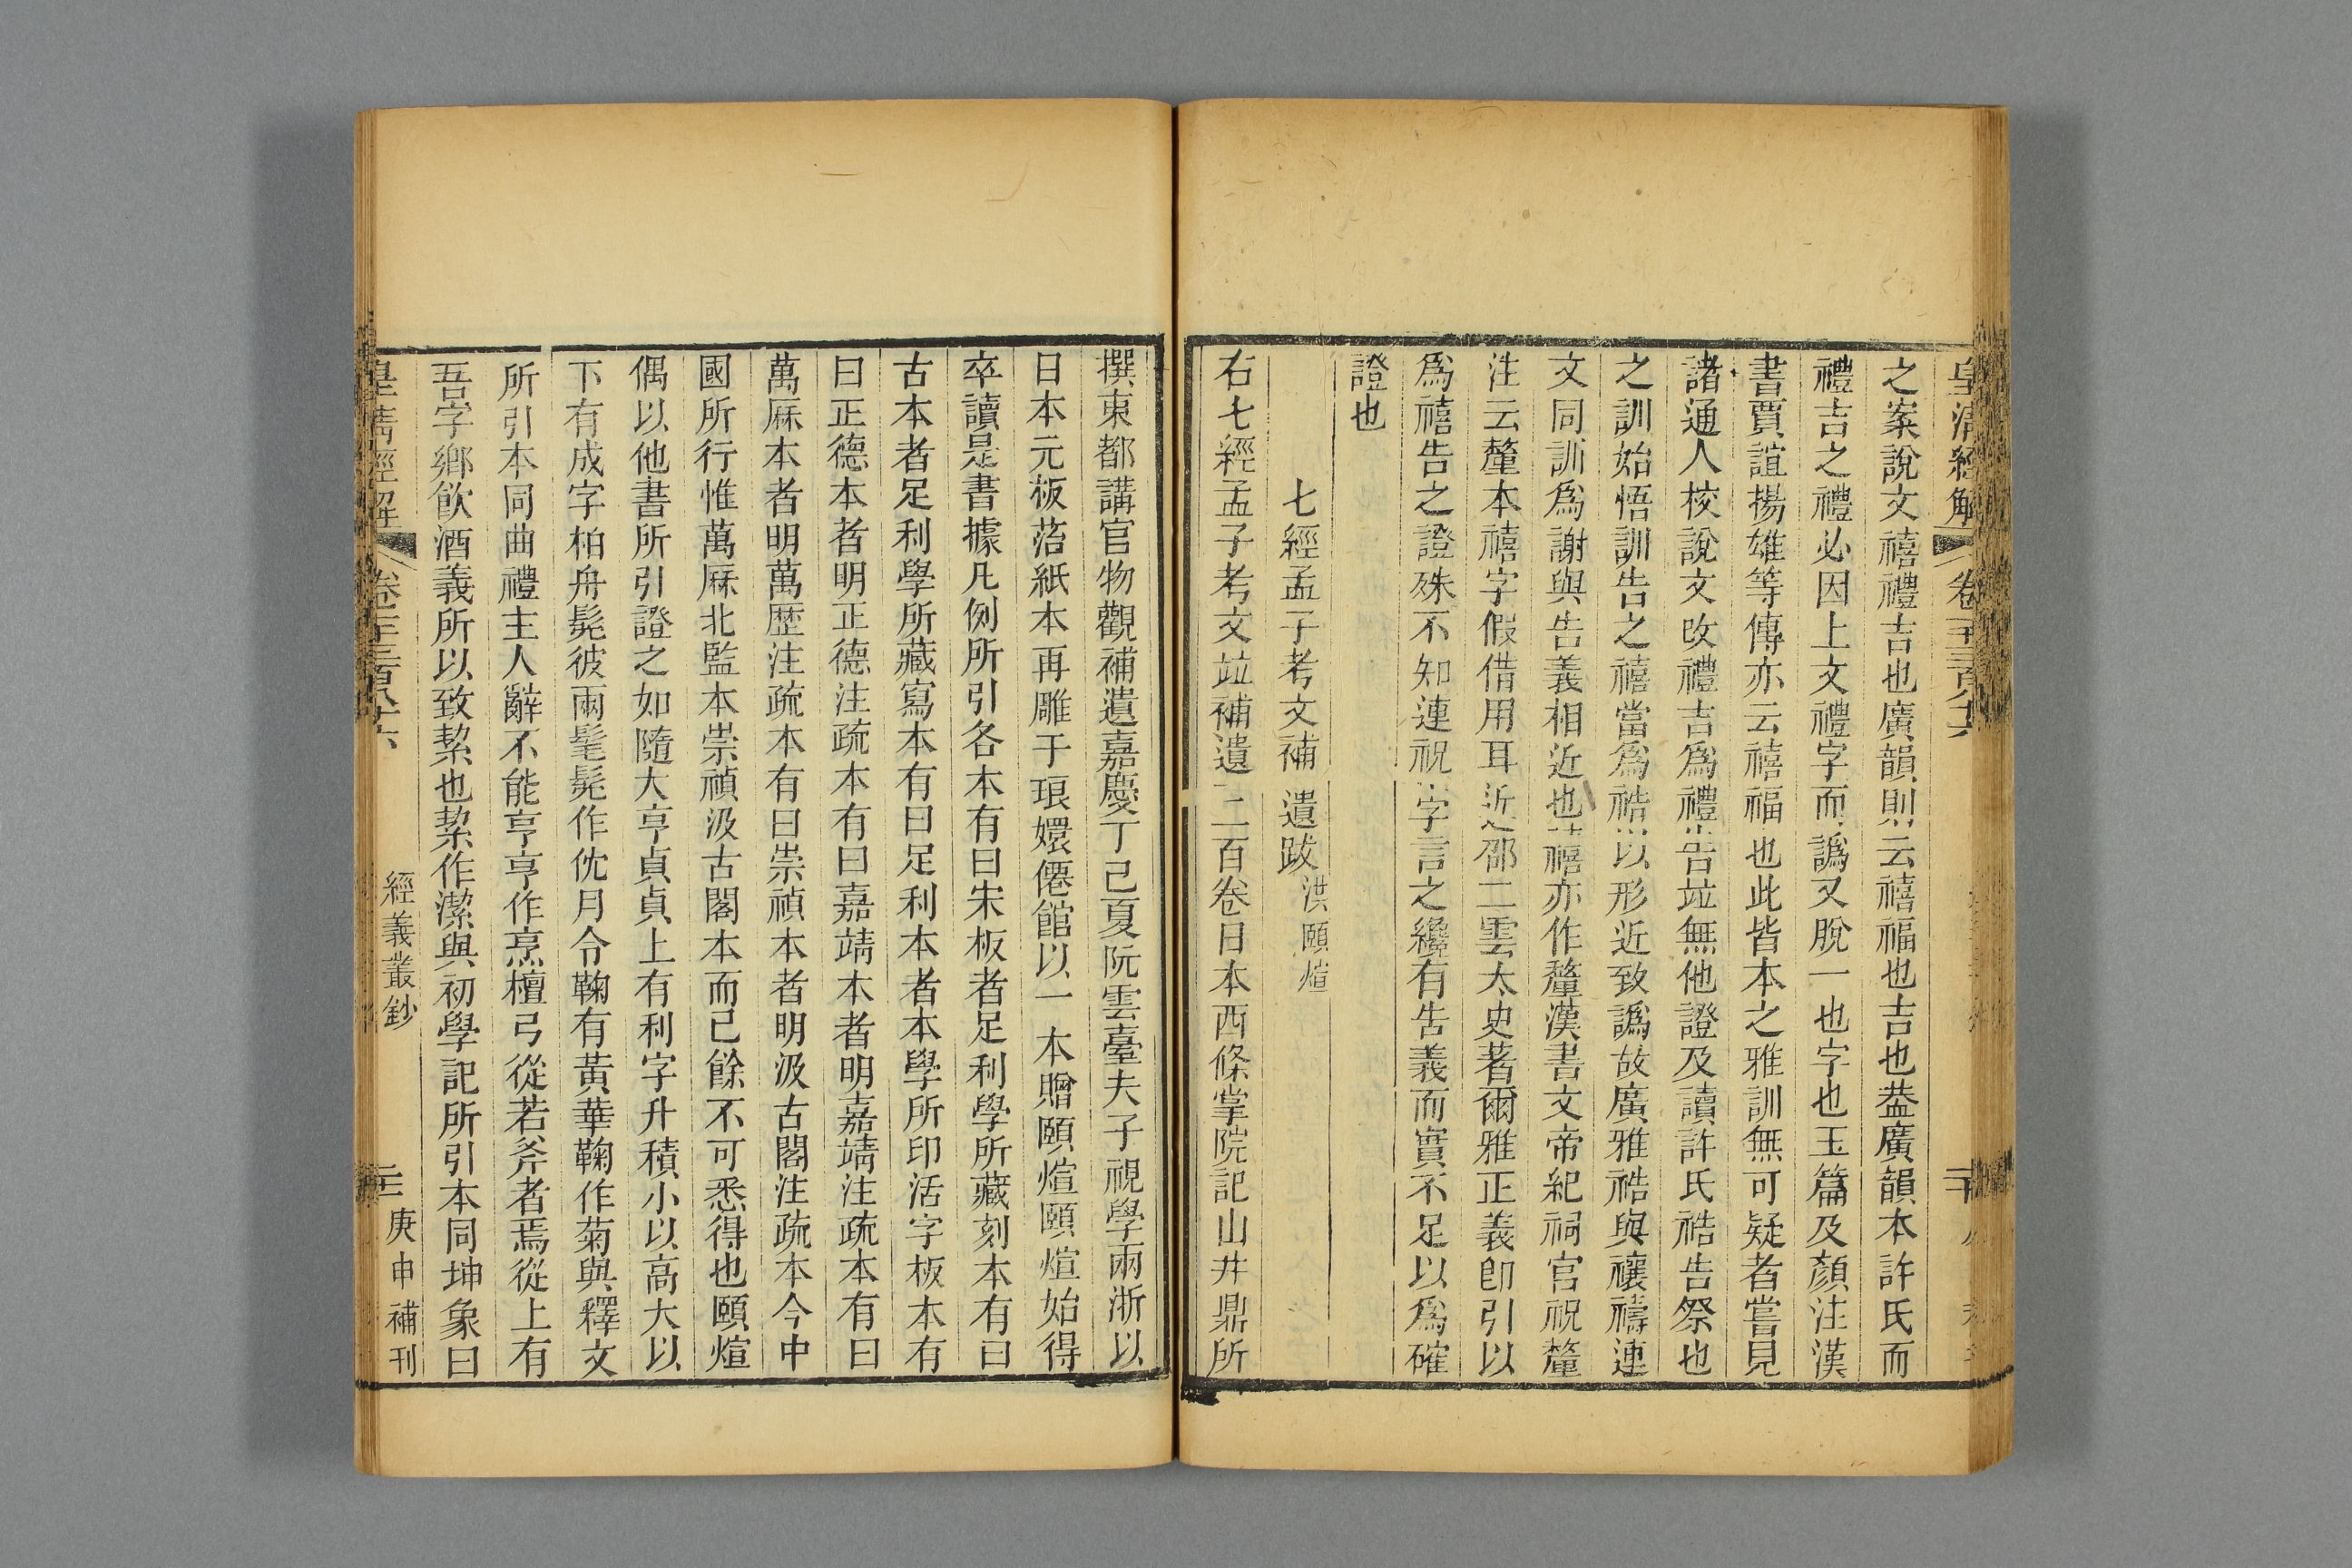 皇清經解 卷一千三百八十六
之案說文禧禮吉也廣韻則云禧福也吉也葢廣韻本許氏而
禮吉之禮必因上文禮字而譌又脫一也字也玉篇及顏注漢
書賈誼揚雄等傳亦云禧福也此皆本之雅訓無可疑者嘗見
諸通人校說文改禮吉爲禮告竝無他證及讀許氏祰告祭也
之訓始悟訓告之禧當爲祰以形近致譌故廣雅祰與禳禱連
文同訓爲謝與告義相近也禧亦作釐漢書文帝紀祠官祝釐
注云釐本禧字假借用耳近邵二雲太史著爾雅正義卽引以
爲禧告之證殊不知連祝字言之纔有告義而實不足以爲確
證也
七經孟子考文補遺跋 洪頤煊
右七經孟子考文竝補遺二百卷日本西條掌院記山井鼎所
撰東都講官物觀補遺嘉慶丁己夏阮雲臺夫子視學兩浙以
日本元板萡紙本再雕于琅嬛僊館以一本贈頤煊頤煊始得
卒讀是書據凡例所引各本有曰宋板者足利學所藏刻本有曰
古本者足利學所藏寫本有曰足利本者本學所印活字板本有
曰正德本者明正德注疏本有曰嘉靖本者明嘉靖注疏本有曰
萬厤本者明萬歷注疏本有曰崇禎本者明汲古閣注疏本今中
國所行惟萬厤北監本崇禎汲古閣本而已餘不可悉得也頤煊
偶以他書所引證之如隨大亨貞貞上有利字升積小以高大以
下有成字柏舟髧彼兩髦髧作优月令鞠有黃華鞠作菊與釋文
所引本同曲禮主人辭不能亨亨作烹檀弓從若斧者焉從上有
吾字鄉飲酒義所以致絜也絜作潔與初學記所引本同坤象曰
皇清經解 卷一千三百八十六 經義叢鈔 庚申補刊